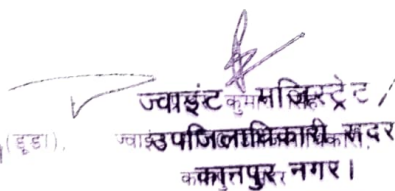 ज्वाइंट मजिस्ट्रेट /
(डूडा). उपजिलाधिकारी सदर
कानपुर नगर।